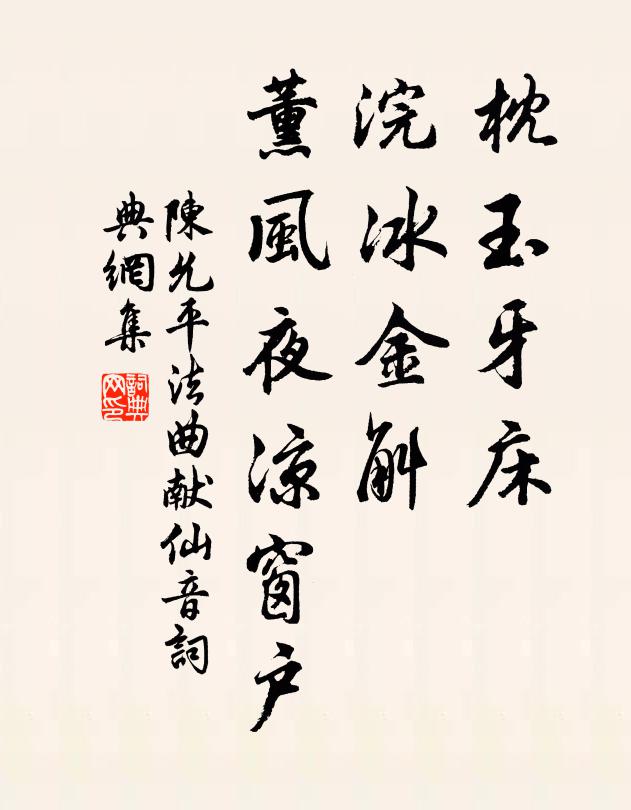 枕玉牙床
浣冰金斛
薰風夜涼窗户
陳允平法曲献仙音詞
典網集
詞典网印